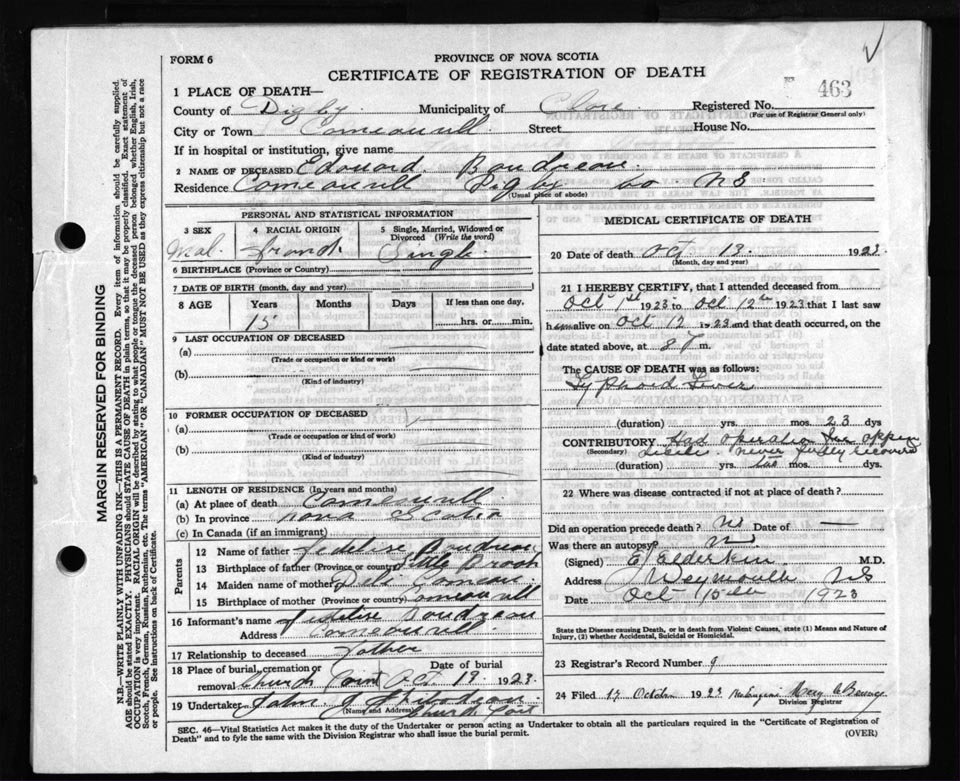 FORM 6
PROVINCE OF NOVA SCOTIA
CERTIFICATE OF REGISTRATION OF DEATH
463
1 PLACE OF DEATH—
County of Digby Municipality of Clare Registered No.
(For use of Registrar General only)
City or Town Comeauvill Street House No.
If in hospital or institution, give name
2 NAME OF DECEASED Edouard Boudreau
Residence Comeauvill Digby Co NS
(Usual place of abode)
PERSONAL AND STATISTICAL INFORMATION
3 SEX
Mal.
4 RACIAL ORIGIN
French
5 Single, Married, Widowed or Divorced (Write the word)
Singl
6 BIRTHPLACE (Province or Country)
7 DATE OF BIRTH (month, day and year)
8 AGE Years Months Days If less than one day,
15 hrs. or min.
9 LAST OCCUPATION OF DECEASED
(a)
(Trade or occupation or kind of work)
(b)
(Kind of industry)
10 FORMER OCCUPATION OF DECEASED
(a)
(Trade or occupation or kind of work)
(b)
(Kind of industry)
11 LENGTH OF RESIDENCE (In years and months)
(a) At place of death Comeauvill
(b) In province Nova Scotia
(c) In Canada (if an immigrant)
Parents
12 Name of father Boudreau
13 Birthplace of father (Province or country) Little Brook
14 Maiden name of mother Comeau
15 Birthplace of mother (Province or country) Comeauvill
16 Informant's name Boudreau
Address Comeauvill
17 Relationship to deceased Father
18 Place of burial, cremation or removal Church Point Date of burial Oct 13 1923
19 Undertaker John J
(Name and Address) Church Point
MEDICAL CERTIFICATE OF DEATH
20 Date of death Oct 13. 1923.
(Month, day and year)
21 I HEREBY CERTIFY, that I attended deceased from
Oct 1st 1923 to Oct 12th 1923 that I last saw
him alive on Oct 12 1923 and that death occurred, on the
date stated above, at m.
The CAUSE OF DEATH was as follows:
Typhoid Fever
(duration) yrs. mos. 23 dys
CONTRIBUTORY Had operation for appen
(Secondary) never fully recovered
(duration) yrs. mos. dys.
22 Where was disease contracted if not at place of death?
Did an operation precede death? No Date of —
Was there an autopsy? No
(Signed) E Elderkin M.D.
Address Weymouth NS
Date Oct 15th 1923
State the Disease causing Death, or in death from Violent Causes, state (1) Means and Nature of
Injury, (2) whether Accidental, Suicidal or Homicidal.
23 Registrar's Record Number 9
24 Filed October 1923 Mary
Division Registrar
SEC. 46—Vital Statistics Act makes it the duty of the Undertaker or person acting as Undertaker to obtain all the particulars required in the "Certificate of Registration of
Death" and to fyle the same with the Division Registrar who shall issue the burial permit. (OVER)
MARGIN RESERVED FOR BINDING
N.B.—WRITE PLAINLY WITH UNFADING INK—THIS IS A PERMANENT RECORD. Every item of information should be carefully supplied.
AGE should be stated EXACTLY. PHYSICIANS should STATE CAUSE OF DEATH in plain terms, so that it may be properly classified. Exact statement of
OCCUPATION is very important. RACIAL ORIGIN will be described by stating to what people or tongue the deceased person belonged, whether English, Irish,
Scotch, French, German, Russian, Ruthenian, etc. The terms "AMERICAN" OR "CANADIAN" MUST NOT BE USED as they express citizenship but not a race
or people. See instructions on back of Certificate.